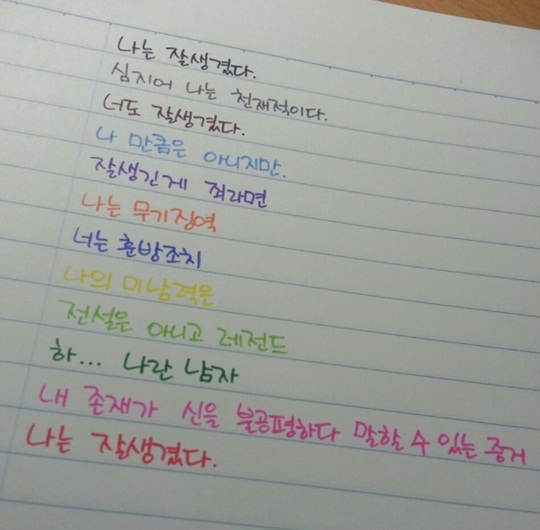 나는 잘생겼다.
심지어 나는 천재적이다.
너도 잘생겼다.
나 만큼은 아니지만.
잘생긴게 죄라면
나는 무기징역
너는 훈방조치
나의 미남력은
전설은 아니고 레전드
하... 나란 남자
내 존재가 신을 불공평하다 말할 수 있는 증거
나는 잘생겼다.